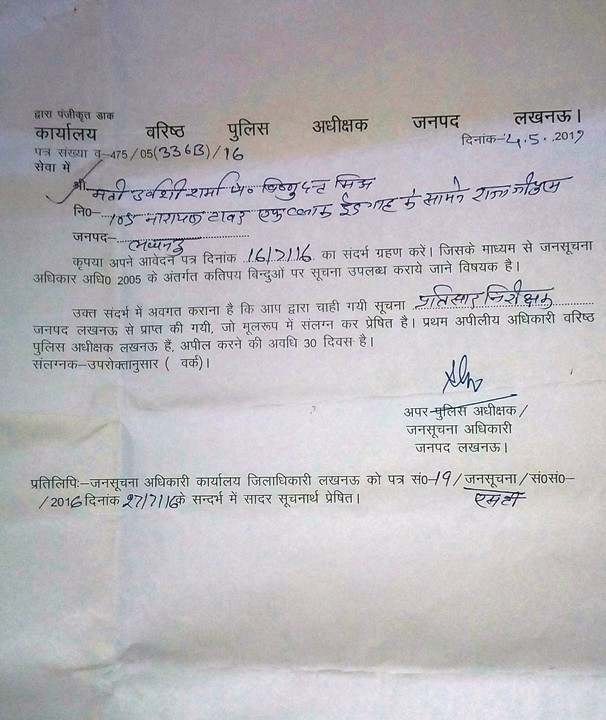 द्वारा पंजीकृत डाक
कार्यालय वरिष्ठ पुलिस अधीक्षक जनपद लखनऊ।
पत्र संख्या व-475/05(336B)/16 दिनांक-4.5.2017
सेवा में
श्रीमती उर्वशी शर्मा
नि०- 102 नारायण टावर एफ ब्लाक ईदगाह के सामने राजाजीपुरम
जनपद- लखनऊ
कृपया अपने आवेदन पत्र दिनांक 16/7/16 का संदर्भ ग्रहण करें। जिसके माध्यम से जनसूचना
अधिकार अधि0 2005 के अंतर्गत कतिपय बिन्दुओं पर सूचना उपलब्ध कराये जाने विषयक है।
उक्त संदर्भ में अवगत कराना है कि आप द्वारा चाही गयी सूचना प्रतिसार निरीक्षक
जनपद लखनऊ से प्राप्त की गयी, जो मूलरूप में संलग्न कर प्रेषित है। प्रथम अपीलीय अधिकारी वरिष्ठ
पुलिस अधीक्षक लखनऊ हैं, अपील करने की अवधि 30 दिवस है।
संलग्नक-उपरोक्तानुसार ( वर्क)।
अपर पुलिस अधीक्षक/
जनसूचना अधिकारी
जनपद लखनऊ।
प्रतिलिपिः-जनसूचना अधिकारी कार्यालय जिलाधिकारी लखनऊ को पत्र सं0-19/जनसूचना/सं0सं0-
/2016 दिनांक 27/7/16 के सन्दर्भ में सादर सूचनार्थ प्रेषित।